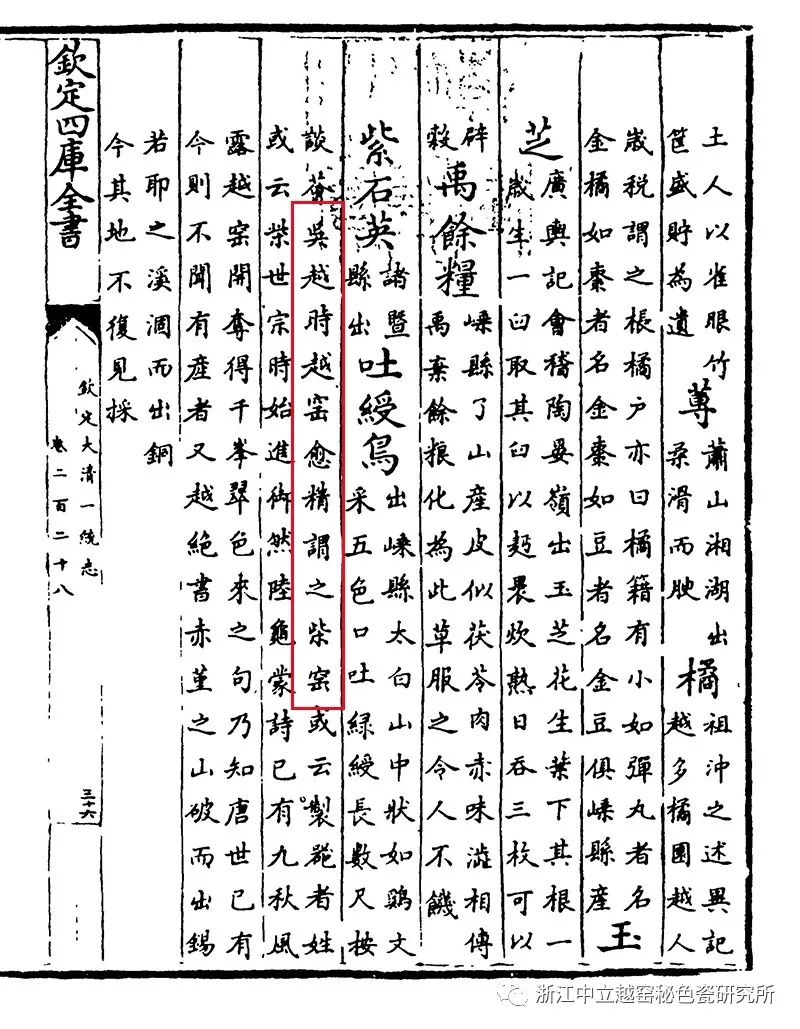 土人以雀眼竹
筐盛貯為遺
蓴
蕭山湘湖出
柔滑而腴
橘
祖沖之述異記
越多橘園越人
歲稅謂之棖橘户亦曰橘籍有小如彈丸者名
金橘如棗者名金棗如豆者名金豆俱嵊縣產
玉
芝
廣輿記會稽陶晏嶺出玉芝花生葉下其根一
歲生一臼取其臼以麫裹炊熟日吞三枚可以
辟
穀
禹餘糧
嵊縣了山產皮似茯苓肉赤味澁相傳
禹棄餘粮化為此草服之令人不饑
紫石英
諸暨
縣出
吐綬鳥
出嵊縣太白山中狀如鷄文
采五色口吐綠綬長數尺按
談薈吳越時越窑愈精謂之柴窑或云製甆者姓
或云柴世宗時始進御然陸龜蒙詩已有九秋風
露越窑開奪得千峯翠色來之句乃知唐世已有
今則不聞有產者又越絕書赤堇之山破而出錫
若耶之溪涸而出銅
今其地不復見採
欽定四庫全書
欽定大清一統志
卷二百二十八
三十六
浙江中立越窑秘色瓷研究所